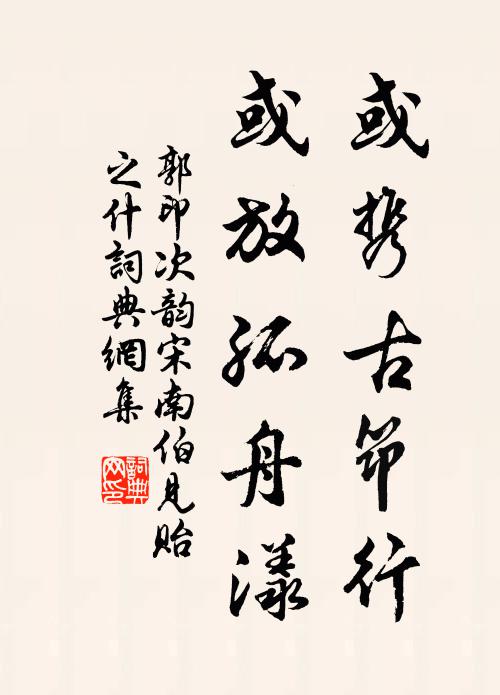 或携古笻行
或放孤舟漾
郭印次韵宋南伯见贻
之什詞典網集
詞典
网印